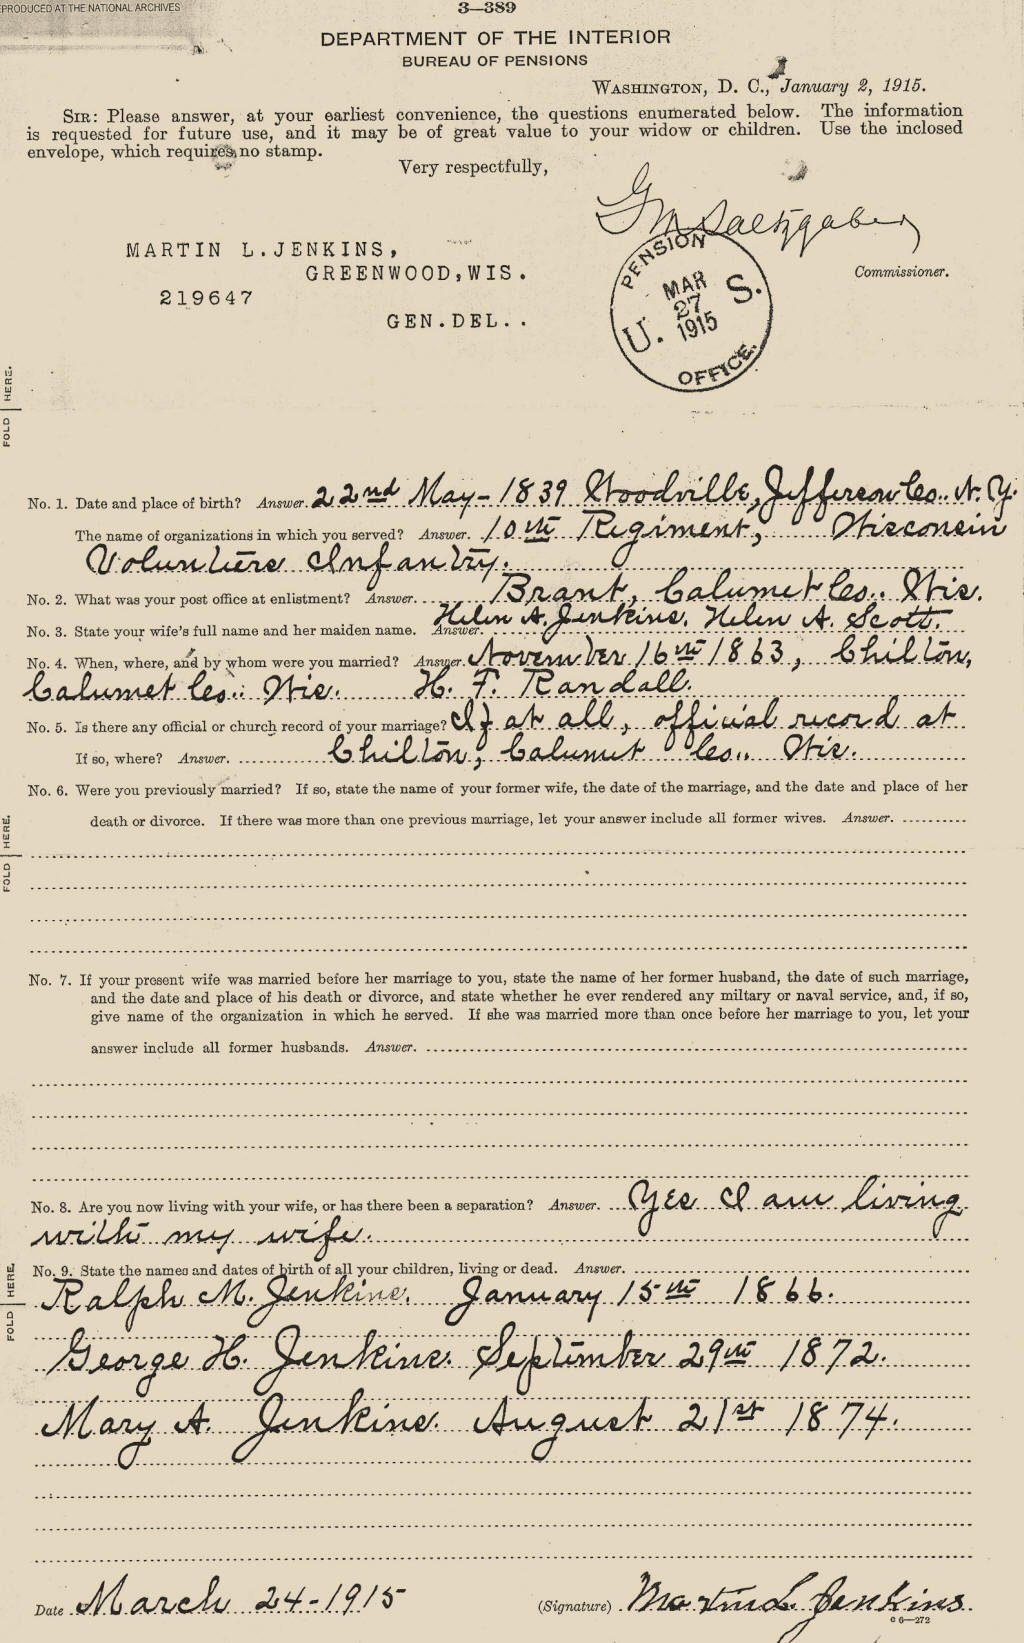 REPRODUCED AT THE NATIONAL ARCHIVES
3—389
DEPARTMENT OF THE INTERIOR
BUREAU OF PENSIONS
WASHINGTON, D. C., January 2, 1915.
SIR: Please answer, at your earliest convenience, the questions enumerated below. The information
is requested for future use, and it may be of great value to your widow or children. Use the inclosed
envelope, which requires no stamp.
Very respectfully,
G M Saltzgaber
Commissioner.
MARTIN L. JENKINS,
GREENWOOD, WIS.
219647
GEN. DEL..
U. S. PENSION OFFICE.
MAR
27
1915
FOLD HERE.
No. 1. Date and place of birth? Answer. 22nd May - 1839 Woodville, Jefferson Co.. N. Y.
The name of organizations in which you served? Answer. 10th Regiment, Wisconsin
Volunteers Infantry.
No. 2. What was your post office at enlistment? Answer. Brant, Calumet Co.. Wis.
No. 3. State your wife's full name and her maiden name. Answer. Helen A. Jenkins. Helen A. Scott.
No. 4. When, where, and by whom were you married? Answer. November 16th 1863, Chilton,
Calumet Co.. Wis. H. F. Randall.
No. 5. Is there any official or church record of your marriage? If at all, official record at
If so, where? Answer. Chilton, Calumet Co.. Wis.
No. 6. Were you previously married? If so, state the name of your former wife, the date of the marriage, and the date and place of her
death or divorce. If there was more than one previous marriage, let your answer include all former wives. Answer.
FOLD HERE.
No. 7. If your present wife was married before her marriage to you, state the name of her former husband, the date of such marriage,
and the date and place of his death or divorce, and state whether he ever rendered any miltary or naval service, and, if so,
give name of the organization in which he served. If she was married more than once before her marriage to you, let your
answer include all former husbands. Answer.
No. 8. Are you now living with your wife, or has there been a separation? Answer. Yes I am living
with my wife.
No. 9. State the names and dates of birth of all your children, living or dead. Answer.
FOLD HERE.
Ralph M. Jenkins. January 15th 1866.
George H. Jenkins. September 29th 1872.
Mary A. Jenkins. August 21st 1874.
Date March 24-1915
(Signature) Martin L. Jenkins
C 6—272